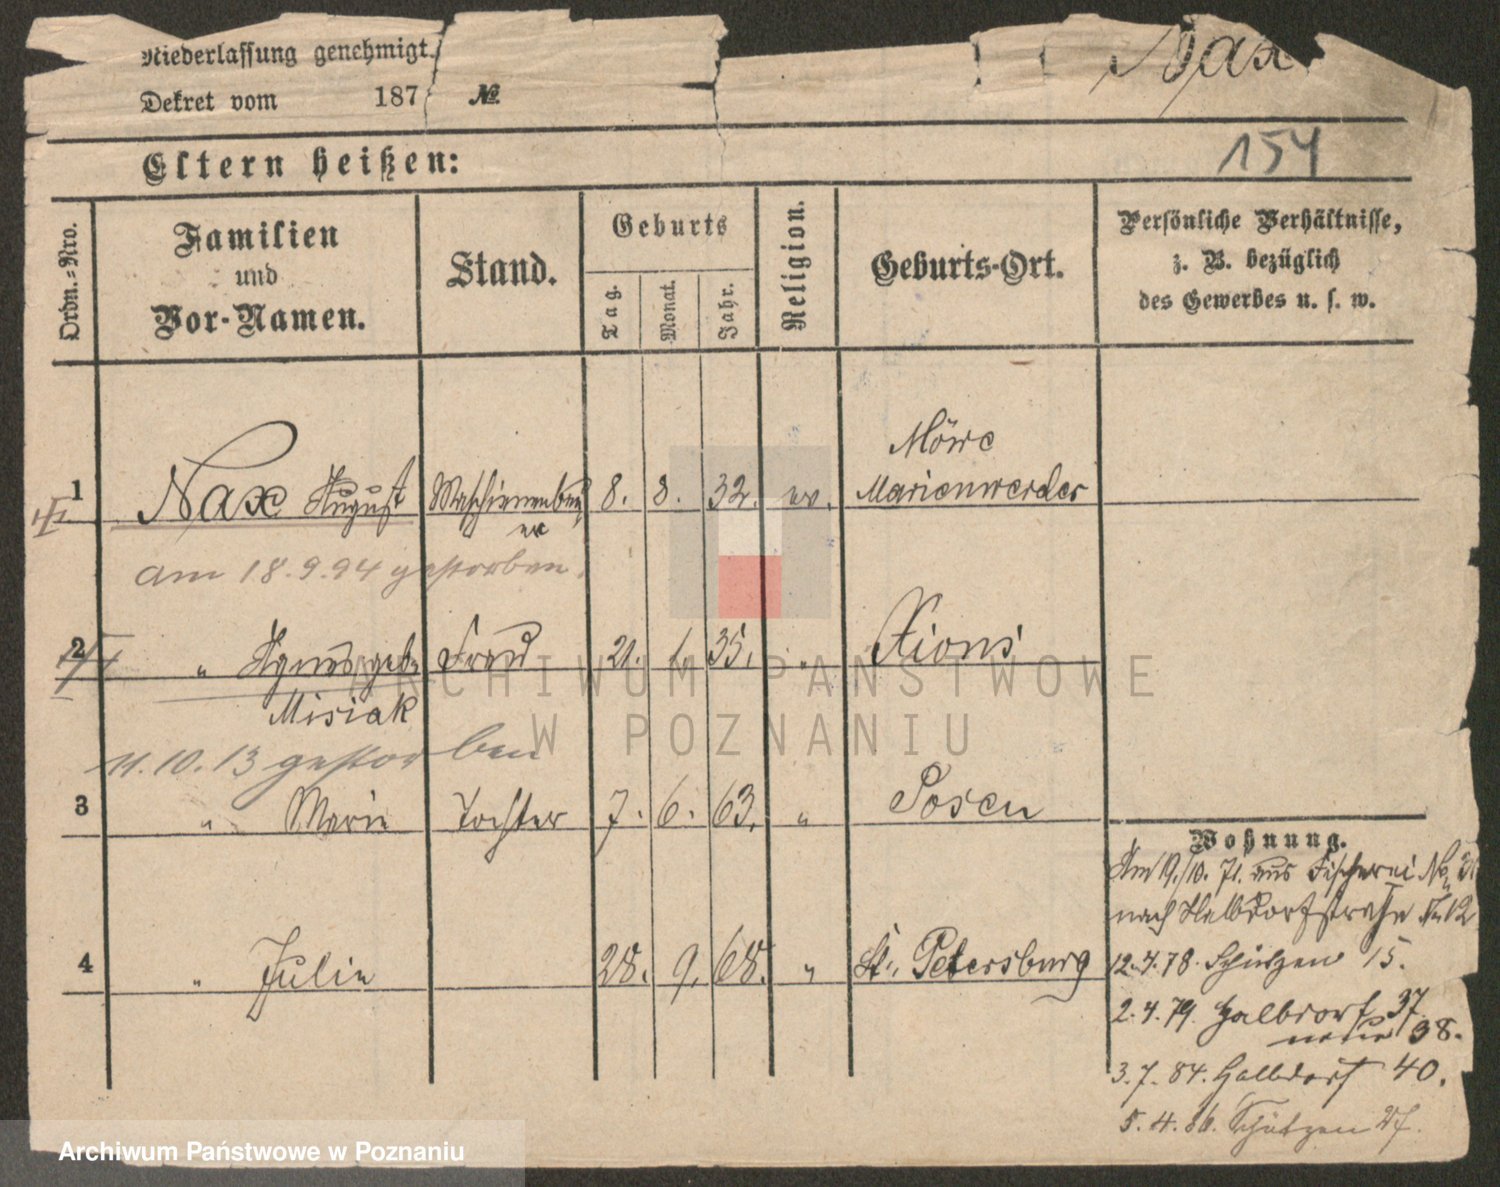 Nax
Niederlassung genehmigt.
Dekret vom 187 №
154
Eltern heißen:
Ordn.=Nro.
Familien
und
Vor-Namen.
Stand.
Geburts
Tag.
Monat.
Jahr.
Religion.
Geburts-Ort.
Persönliche Verhältnisse,
z. B. bezüglich
des Gewerbes u. s. w.
Möwe
1 Nax August Maschinenbau 8. 8. 32. ev. Marienwerder
er
am 18.9.94 gestorben.
2 " Agnes geb. Frau 21. 1. 35. " Xions
Misiak
11.10.13 gestorben
3 " Marie Tochter 7. 6. 63. " Posen
4 " Julie 28. 9. 68. " St. Petersburg
Wohnung.
Am 19./10. 71. aus Fischerei No
nach Halbdorfstraße No 12
12.4.78. Schützen 15.
2.4.79. Halbdorf 37
38.
3.7.84. Halbdorf 40.
5.4.86. Schützen
ARCHIWUM PAŃSTWOWE
W POZNANIU
Archiwum Państwowe w Poznaniu